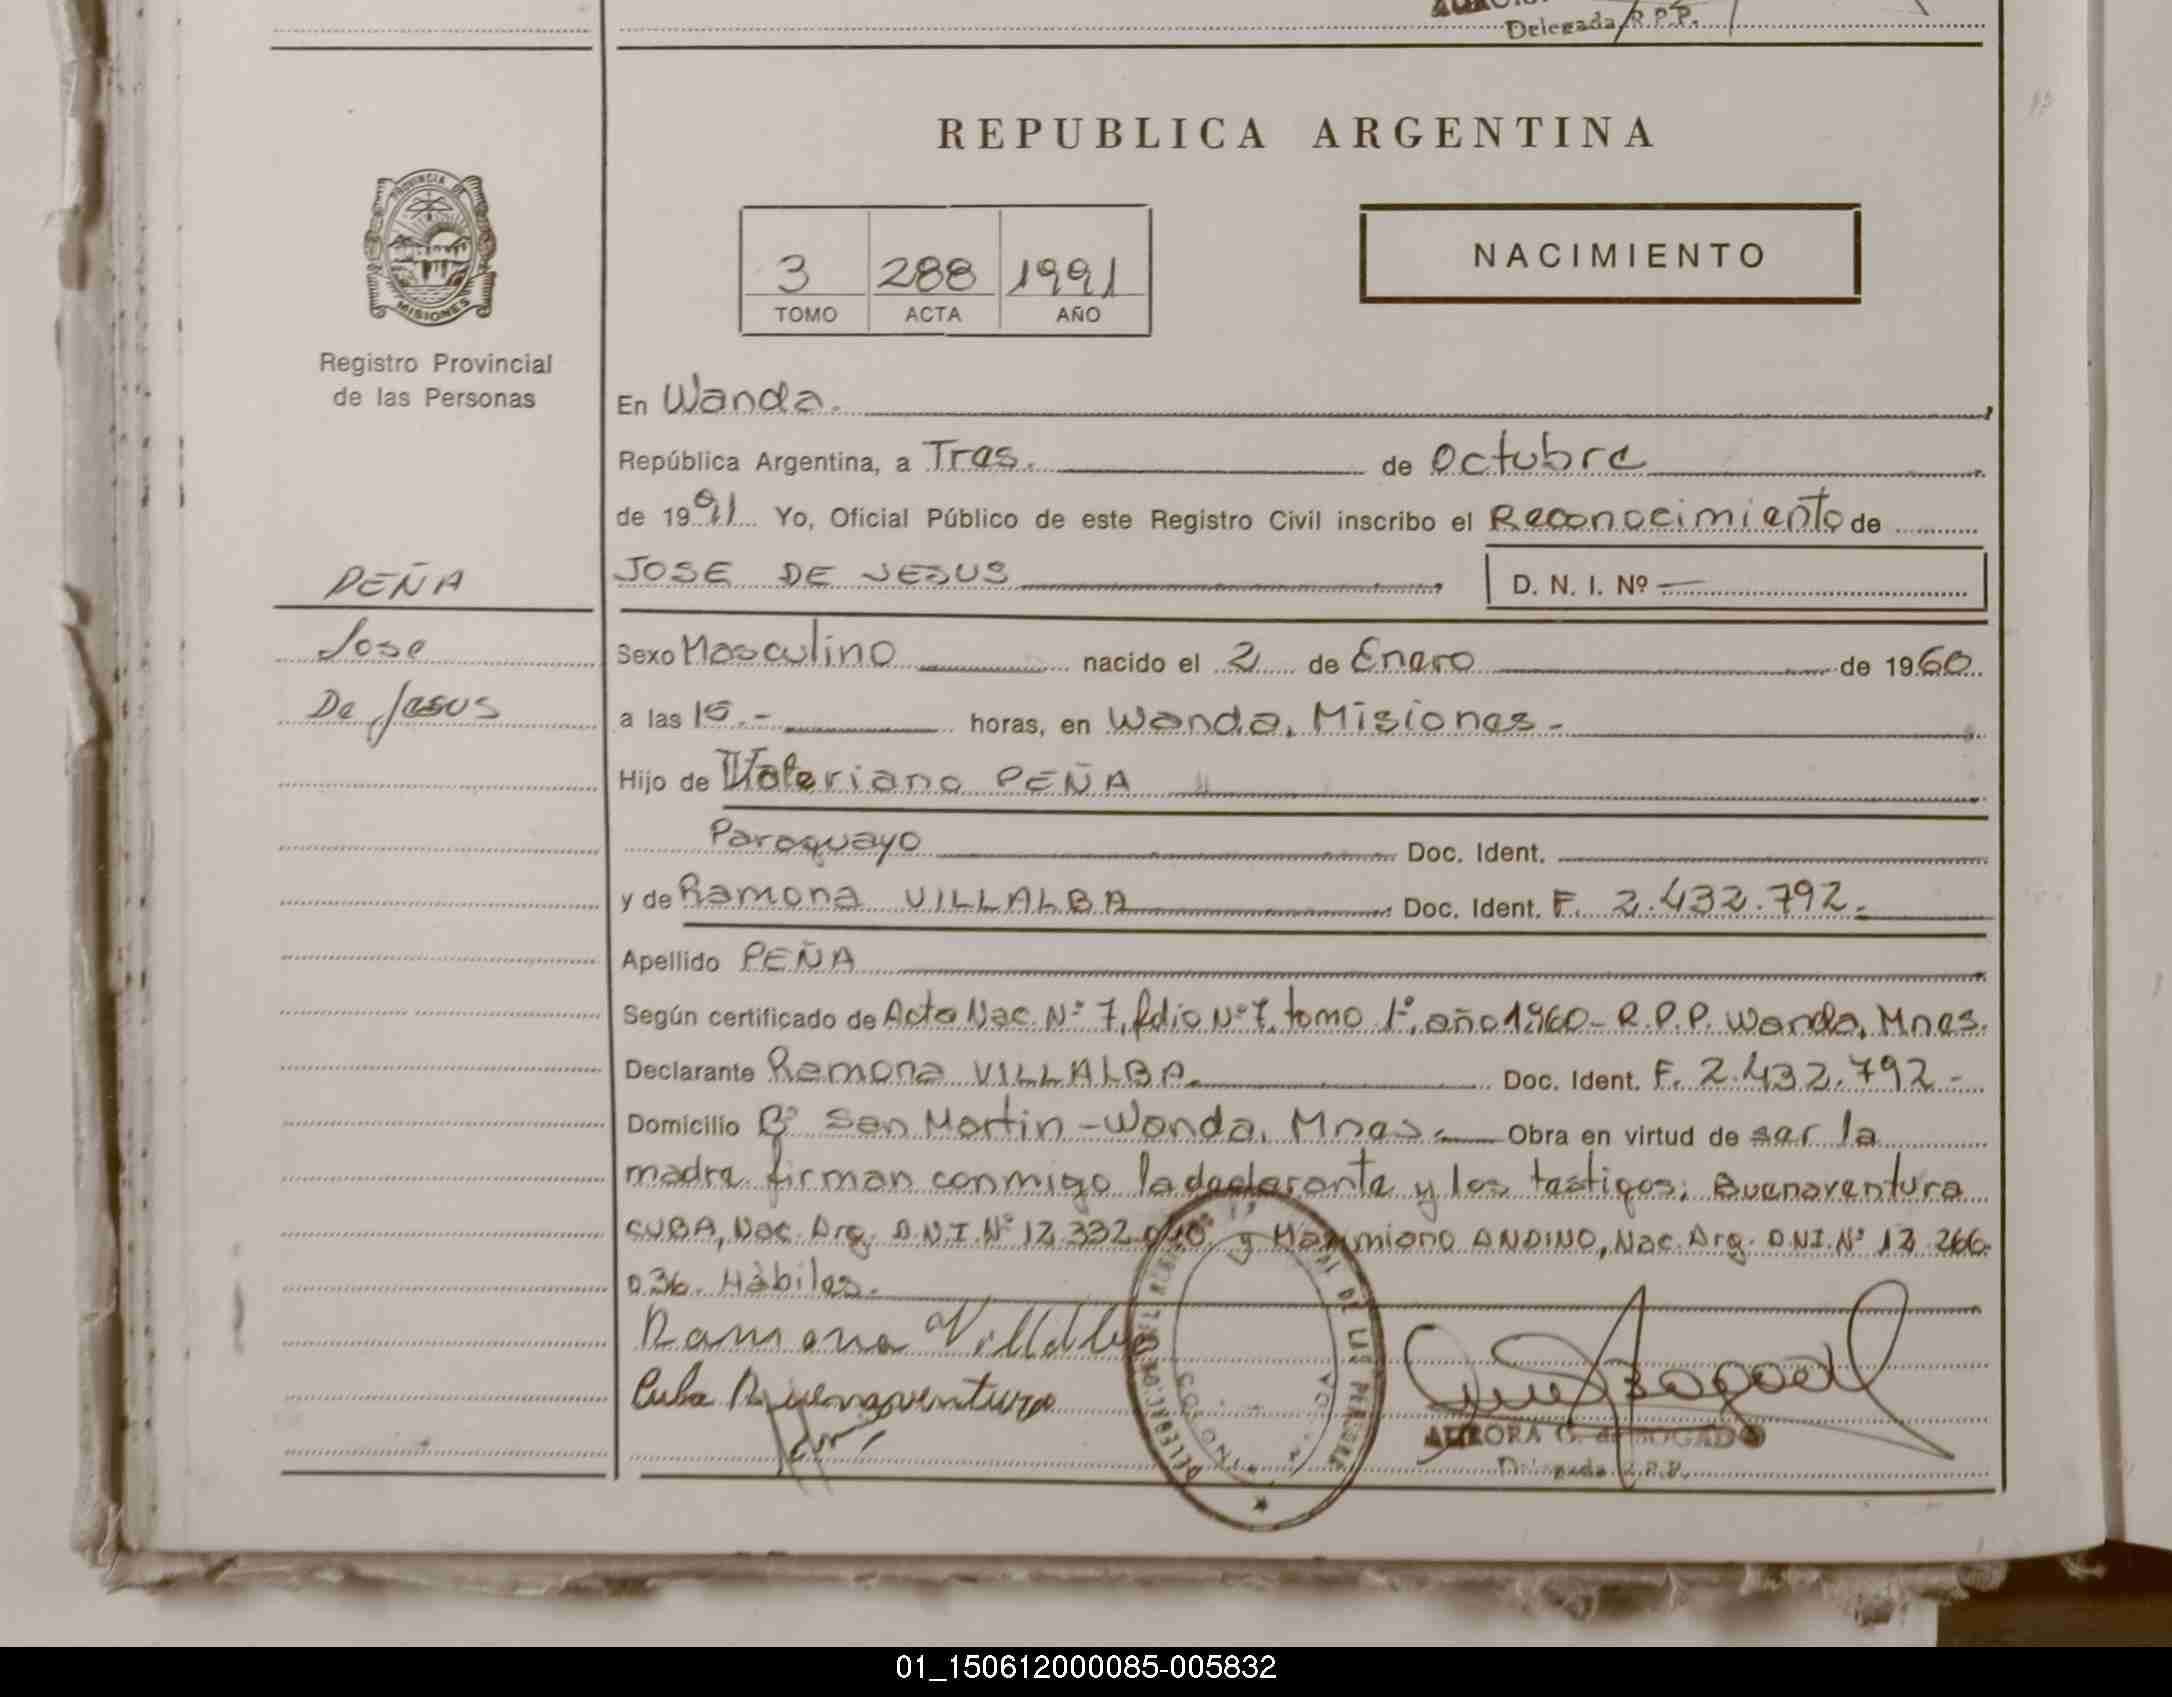 Delegada R.P.P.
REPUBLICA ARGENTINA
PROVINCIA DE
MISIONES
Registro Provincial
de las Personas
3 288 1991
TOMO ACTA AÑO
NACIMIENTO
En Wanda.
República Argentina, a Tres. de Octubre
de 1991 Yo, Oficial Público de este Registro Civil inscribo el Reconocimiento de
PEÑA
JOSE DE JESUS D. N. I. Nº —
Jose
Sexo Masculino nacido el 2 de Enero de 1960
De Jesus
a las 15.- horas, en Wanda, Misiones-
Hijo de Valeriano PEÑA
Paraguayo Doc. Ident.
y de Ramona VILLALBA Doc. Ident. F. 2.432.792.
Apellido PEÑA
Según certificado de Acta Nac. Nº 7, folio Nº 7, tomo 1º, año 1960- R.P.P. Wanda, Mnes.
Declarante Ramona VILLALBA. Doc. Ident. F. 2.432.792-
Domicilio Bº San Martin-Wanda, Mnes. Obra en virtud de ser la
madre firman conmigo la declarante y los testigos: Buenaventura
CUBA, Nac. Arg. D.N.I. Nº 12.332 y ANDINO, Nac. Arg. D.N.I. Nº 12.266.
036. Hábiles.
Ramona Villalba
Cuba Buenaventura
AURORA G. de BOGADO
Delegada R.P.P.
01_150612000085-005832